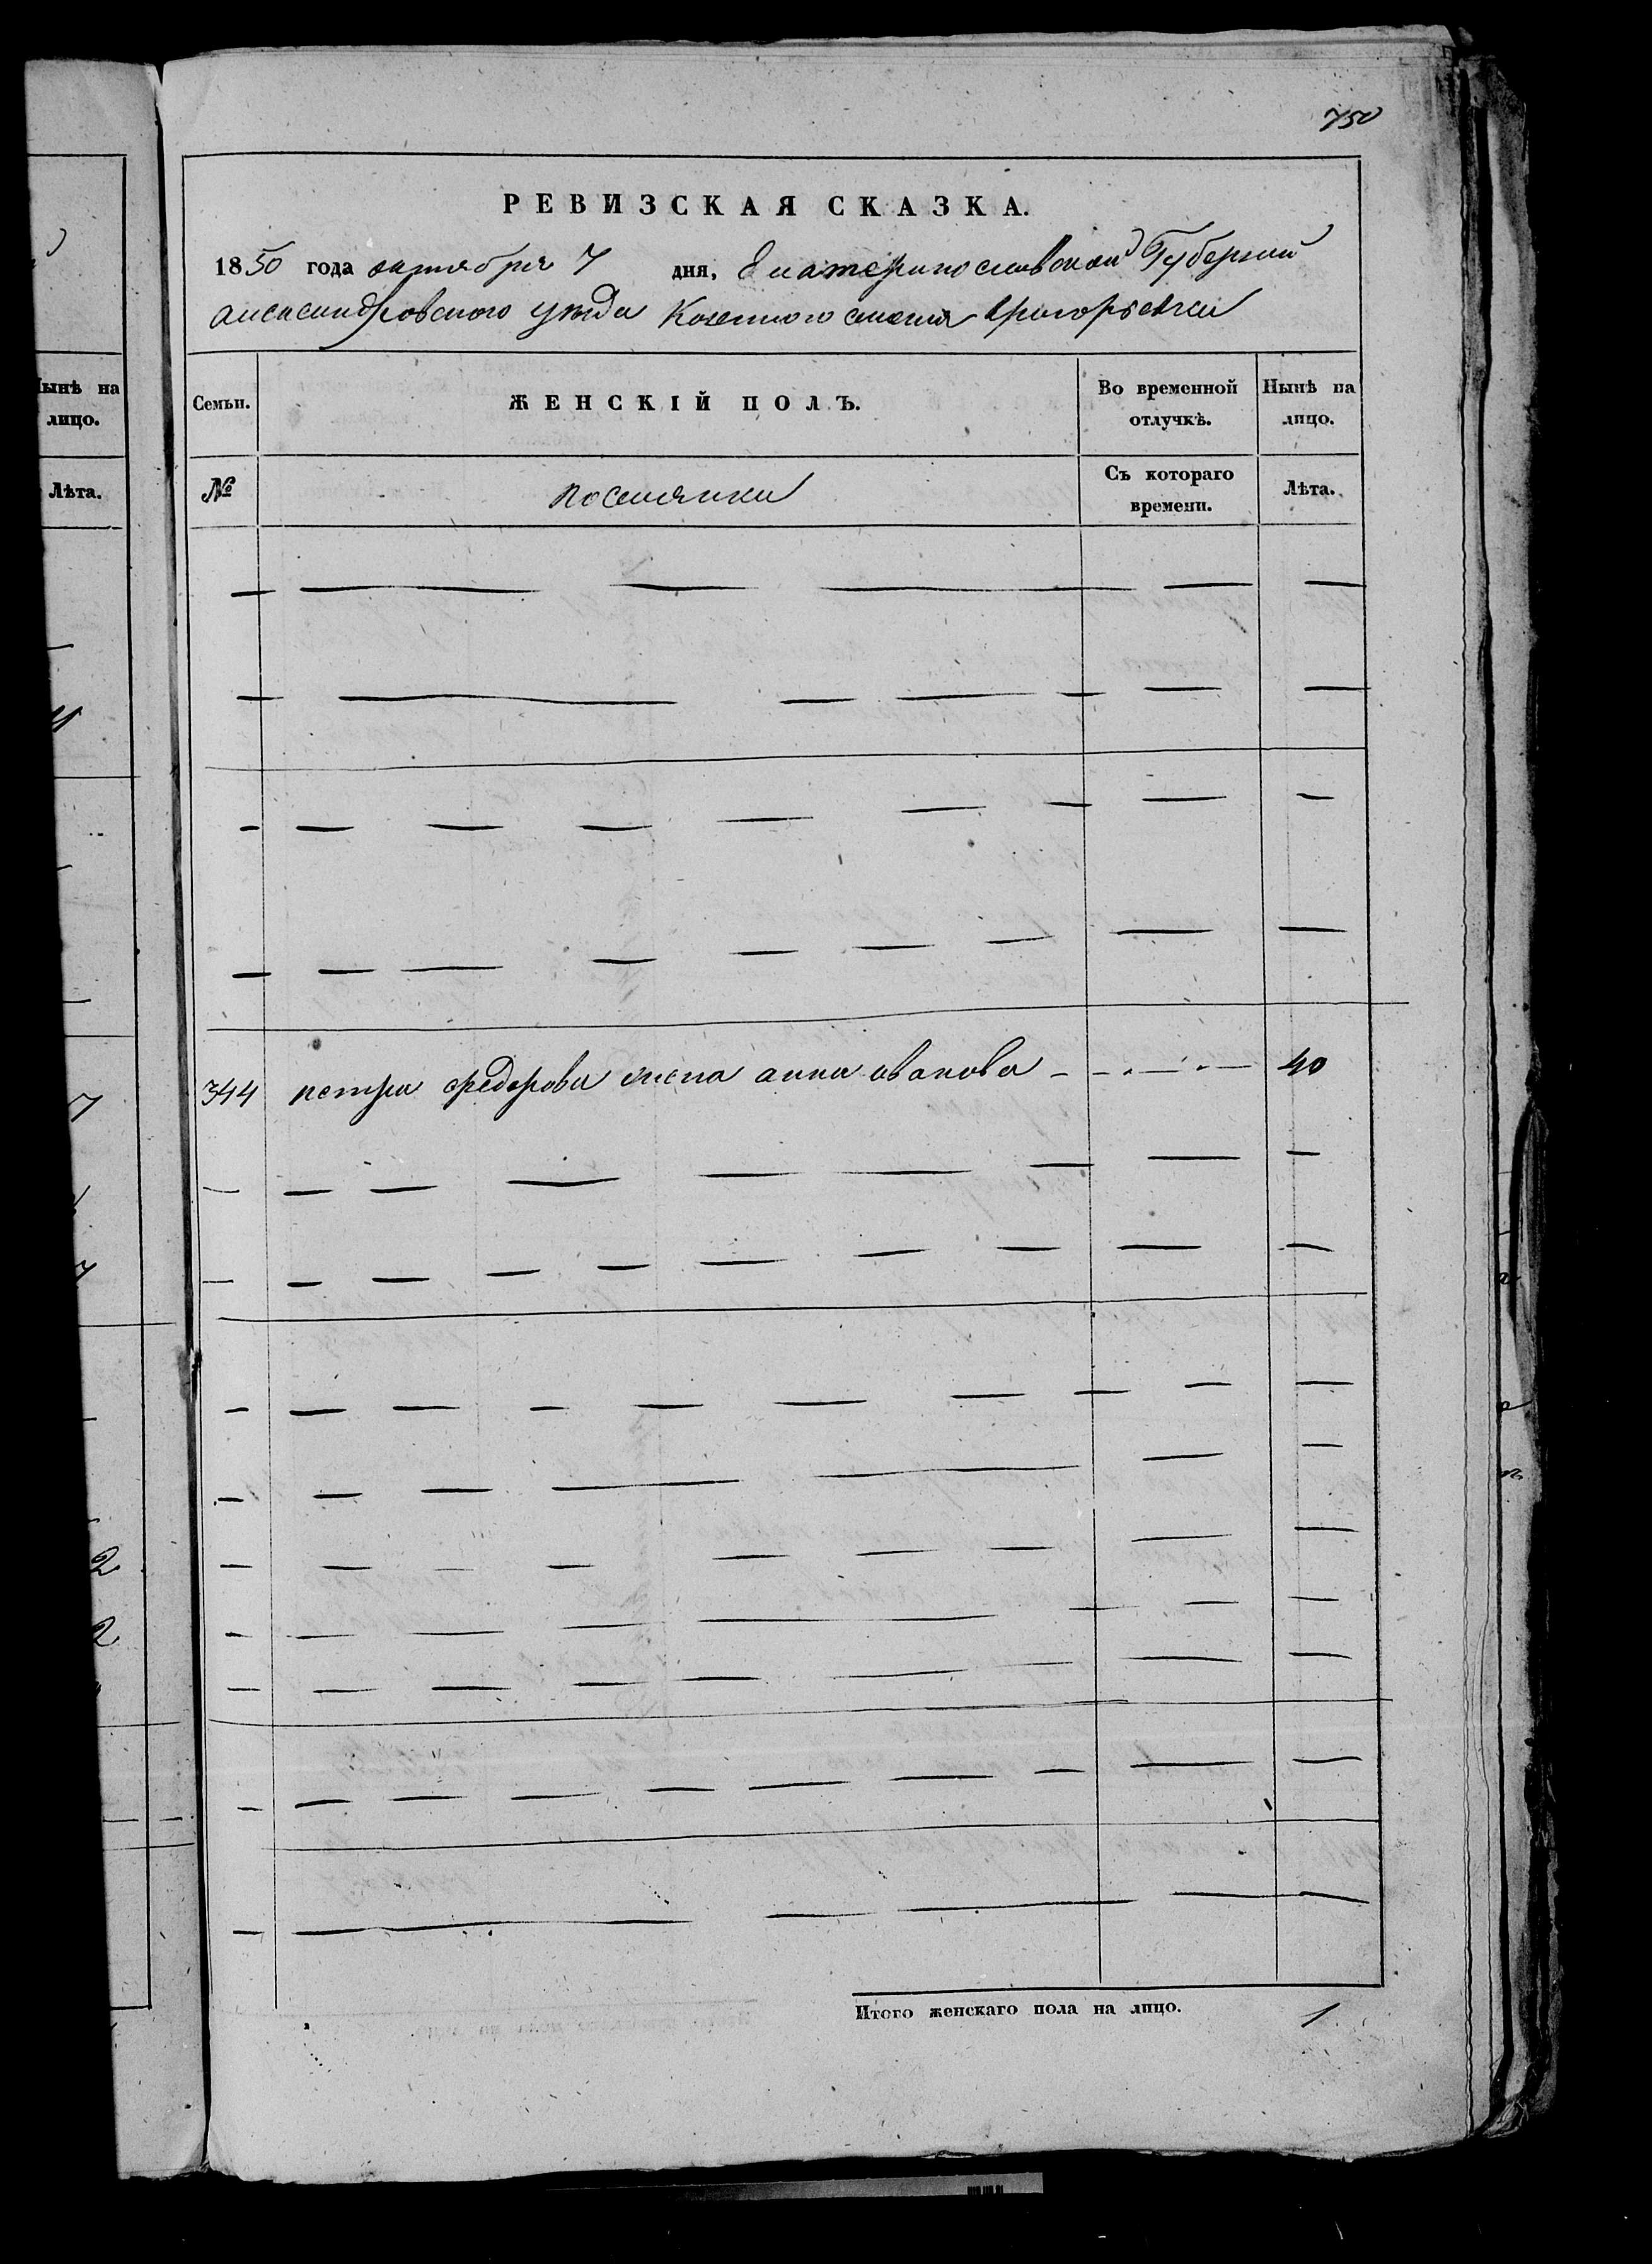 750
РЕВИЗСКАЯ СКАЗКА.
1850 года октября 7 дня, Екатеринославской Губернии
Александровского уезда Казенного селения Григорьевки
Семьи. ЖЕНСКІЙ ПОЛЪ. Во временной отлучкѣ. Нынѣ на лицо.
№ поселянки Съ котораго времени. Лѣта.
344 петра федорова жена анна иванова 40
Итого женскаго пола на лицо. 1
ынѣ на
лицо.
Лѣта.
7
2
2